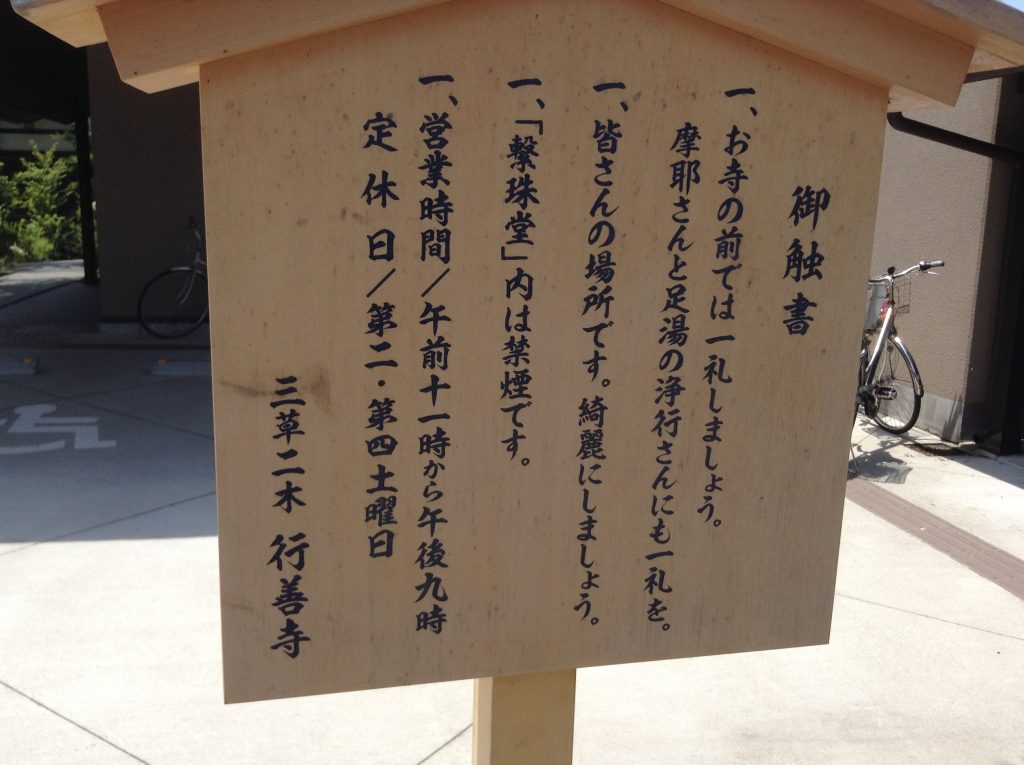 御触書
一、お寺の前では一礼しましょう。
摩耶さんと足湯の浄行さんにも一礼を。
一、皆さんの場所です。綺麗にしましょう。
一、「繋珠堂」内は禁煙です。
一、営業時間／午前十一時から午後九時
定休日／第二・第四土曜日
三草二木 行善寺